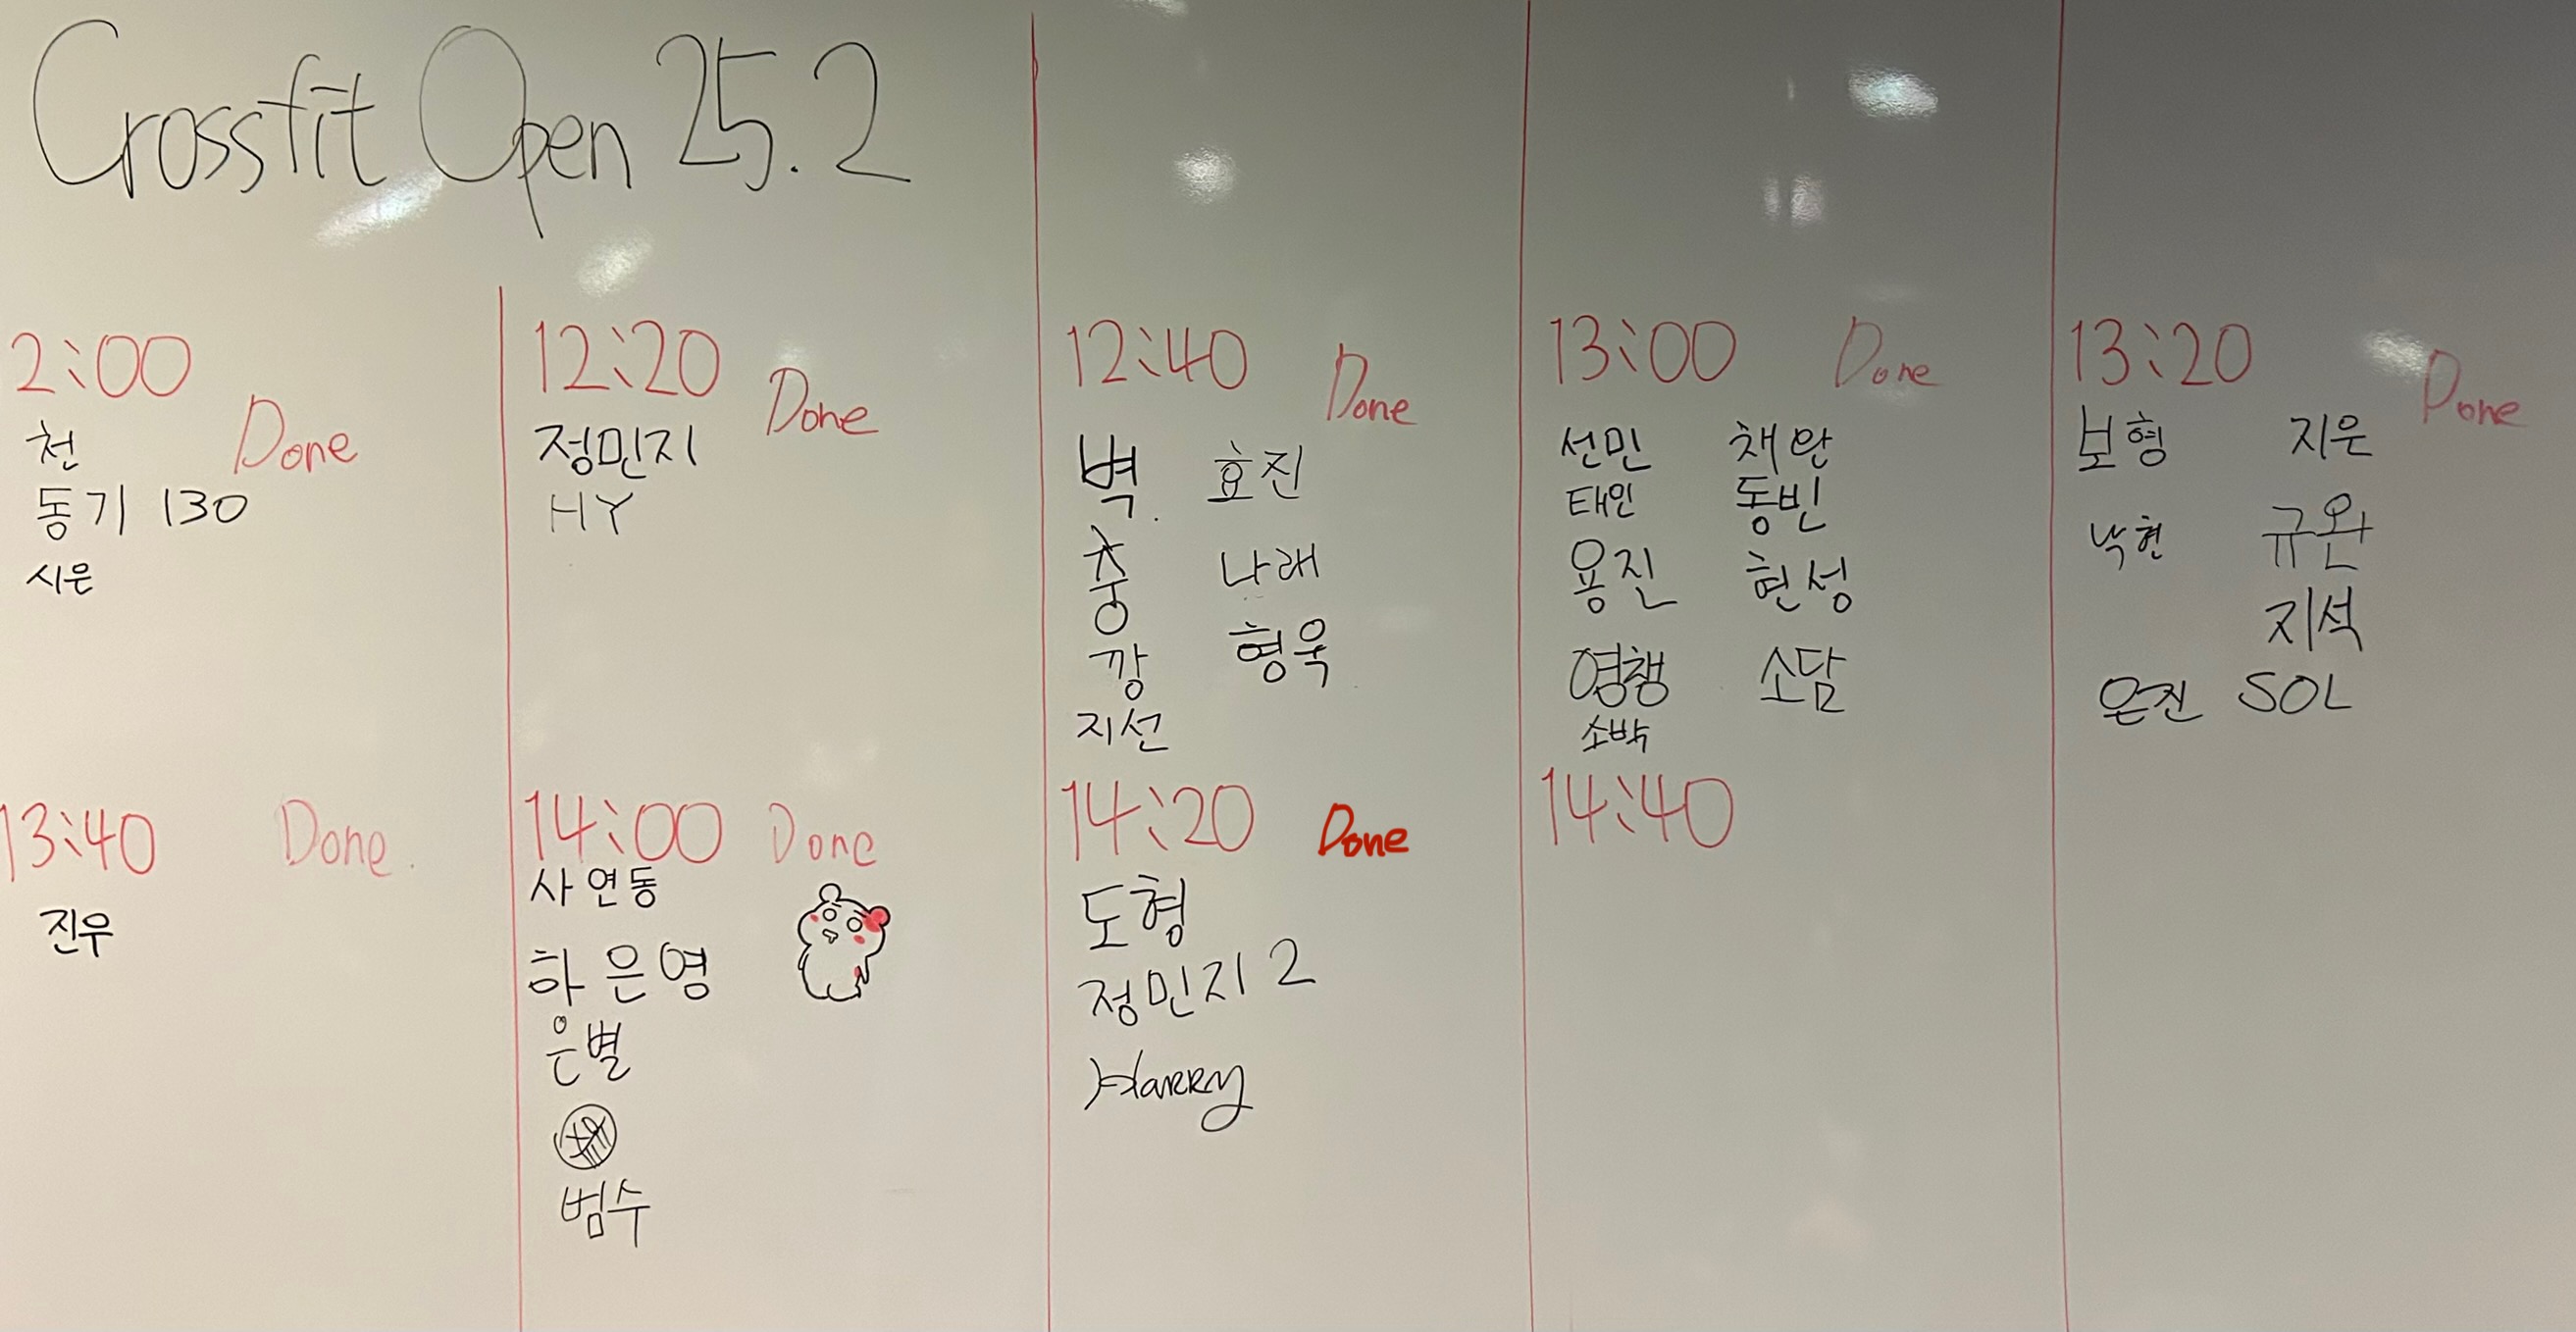 Crossfit Open 25.2
2:00 Done
천
동기 130
시은
12:20 Done
정민지
HY
12:40 Done
벽 효진
충 나래
깡 형욱
지선
13:00 Done
선민 채완
태인 동빈
용진 현성
영챙 소담
소박
13:20 Done
보형 지은
낙현 규완
지석
은진 SOL
13:40 Done
진우
14:00 Done
사연동
하은영
은별
범수
14:20 Done
도형
정민지 2
Harry
14:40